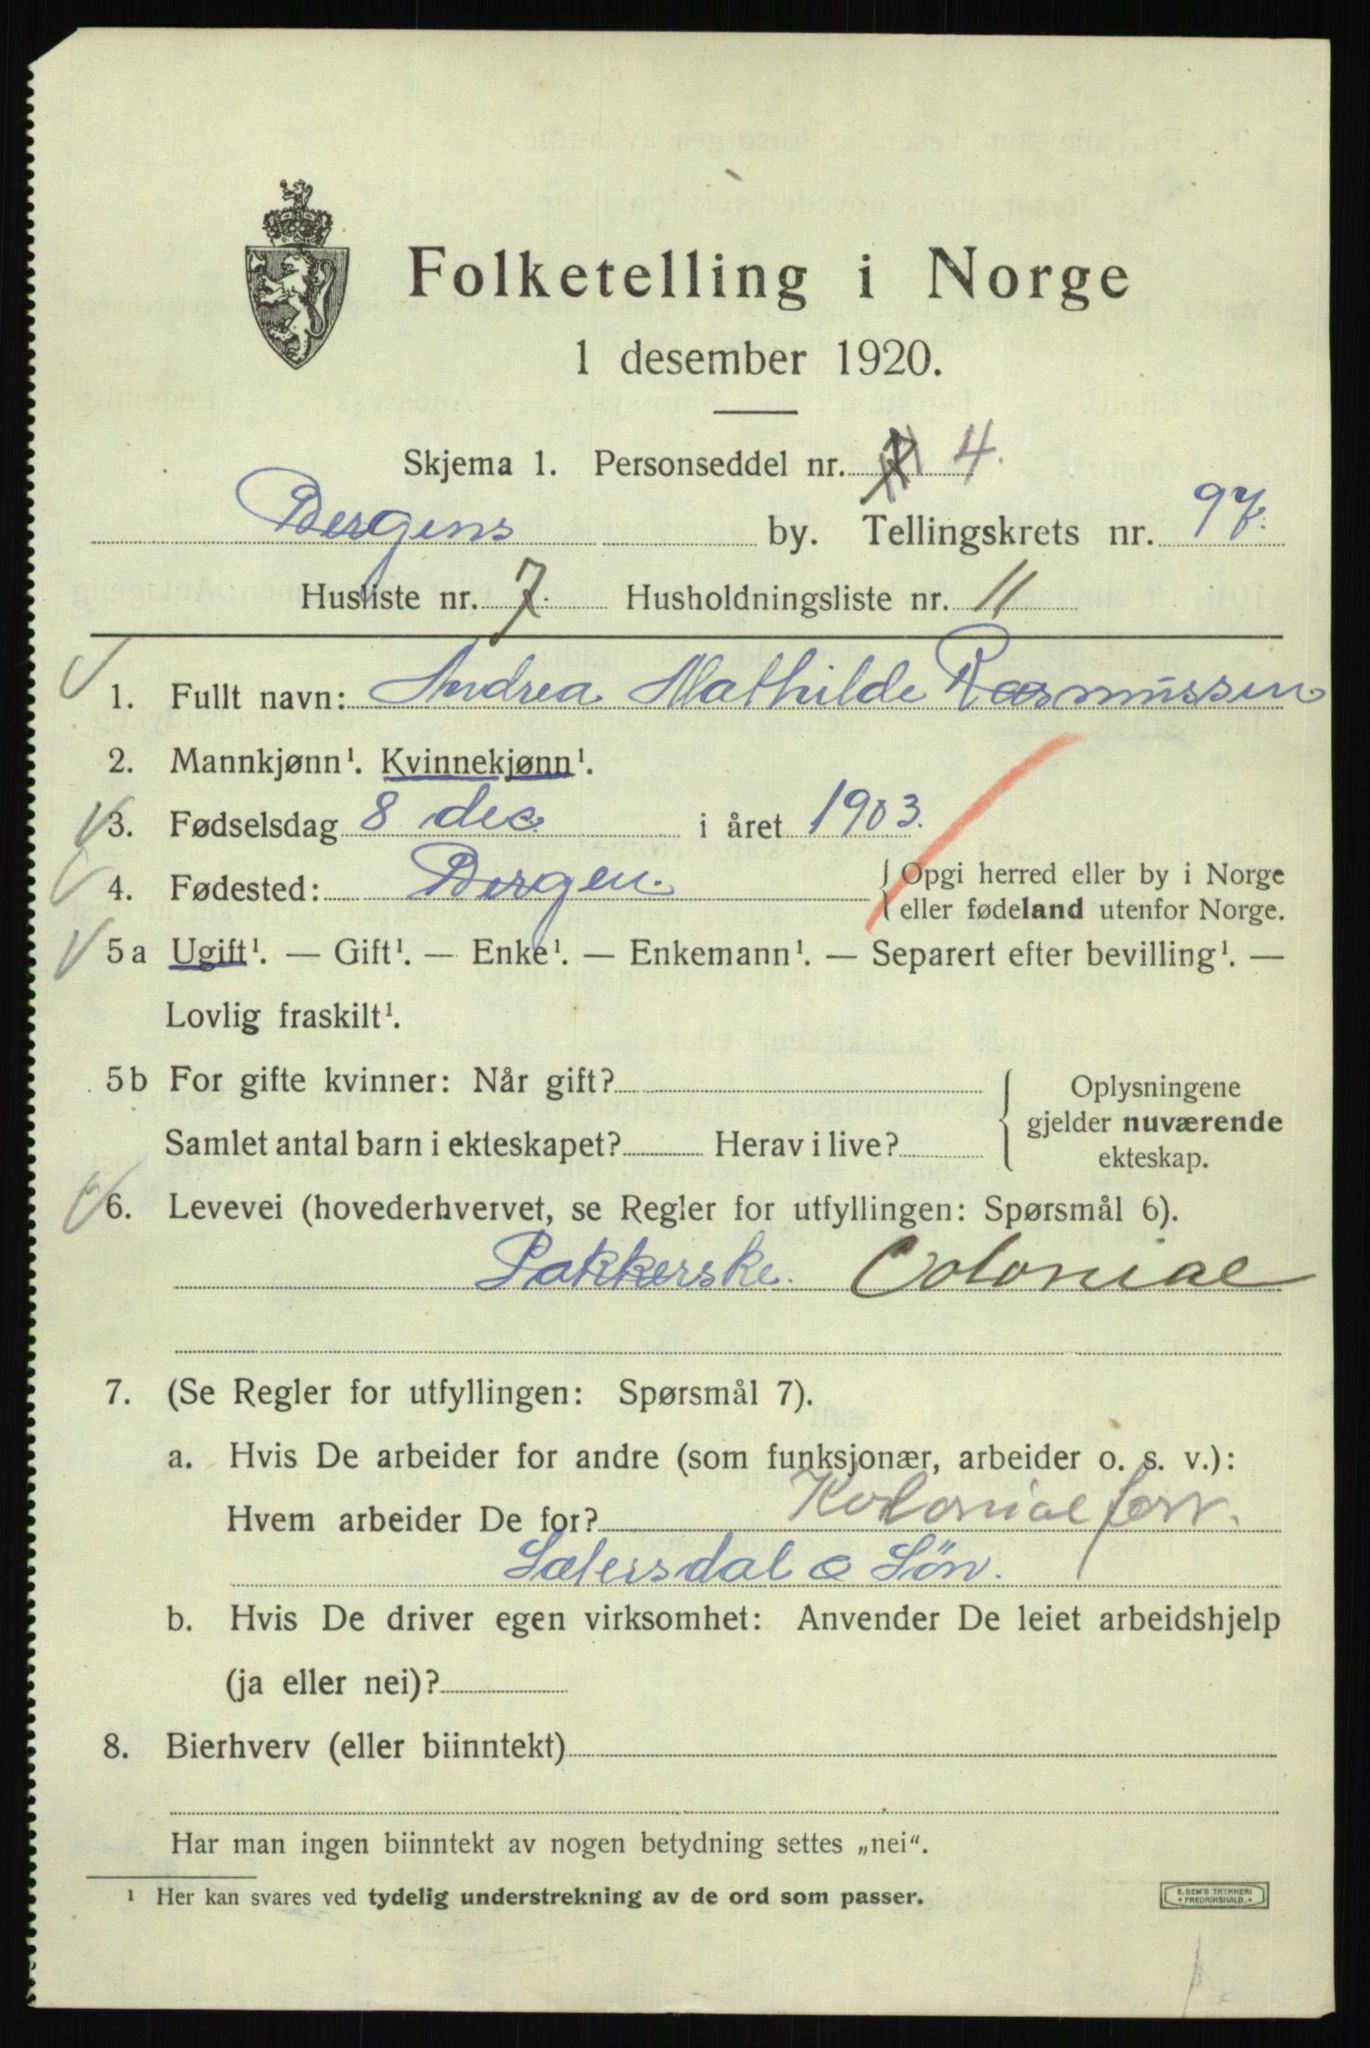 Folketelling i Norge
1 desember 1920.
Skjema 1. Personseddel nr. 4.
Bergens by. Tellingskrets nr. 97.
Husliste nr. 7. Husholdningsliste nr. 11
1. Fullt navn: Andrea Mathilde Rasmussen
2. Mannkjønn¹. Kvinnekjønn¹.
3. Fødselsdag 8 dec. i året 1903.
4. Fødested: Bergen. { Opgi herred eller by i Norge
eller fødeland utenfor Norge.
5a Ugift¹. — Gift¹. — Enke¹. — Enkemann¹. — Separert efter bevilling¹. —
Lovlig fraskilt¹.
5b For gifte kvinner: Når gift? { Oplysningene
gjelder nuværende
Samlet antal barn i ekteskapet? Herav i live?
ekteskap.
6. Levevei (hovederhvervet, se Regler for utfyllingen: Spørsmål 6).
Pakkerske. Colonial
7. (Se Regler for utfyllingen: Spørsmål 7).
a. Hvis De arbeider for andre (som funksjonær, arbeider o. s. v.):
Hvem arbeider De for? Kolonialforr.
& Søn.
b. Hvis De driver egen virksomhet: Anvender De leiet arbeidshjelp
(ja eller nei)?
8. Bierhverv (eller biinntekt)
Har man ingen biinntekt av nogen betydning settes „nei“.
¹ Her kan svares ved tydelig understrekning av de ord som passer.
E. SEM'S TRYKKERI
* FREDRIKSHALD. *